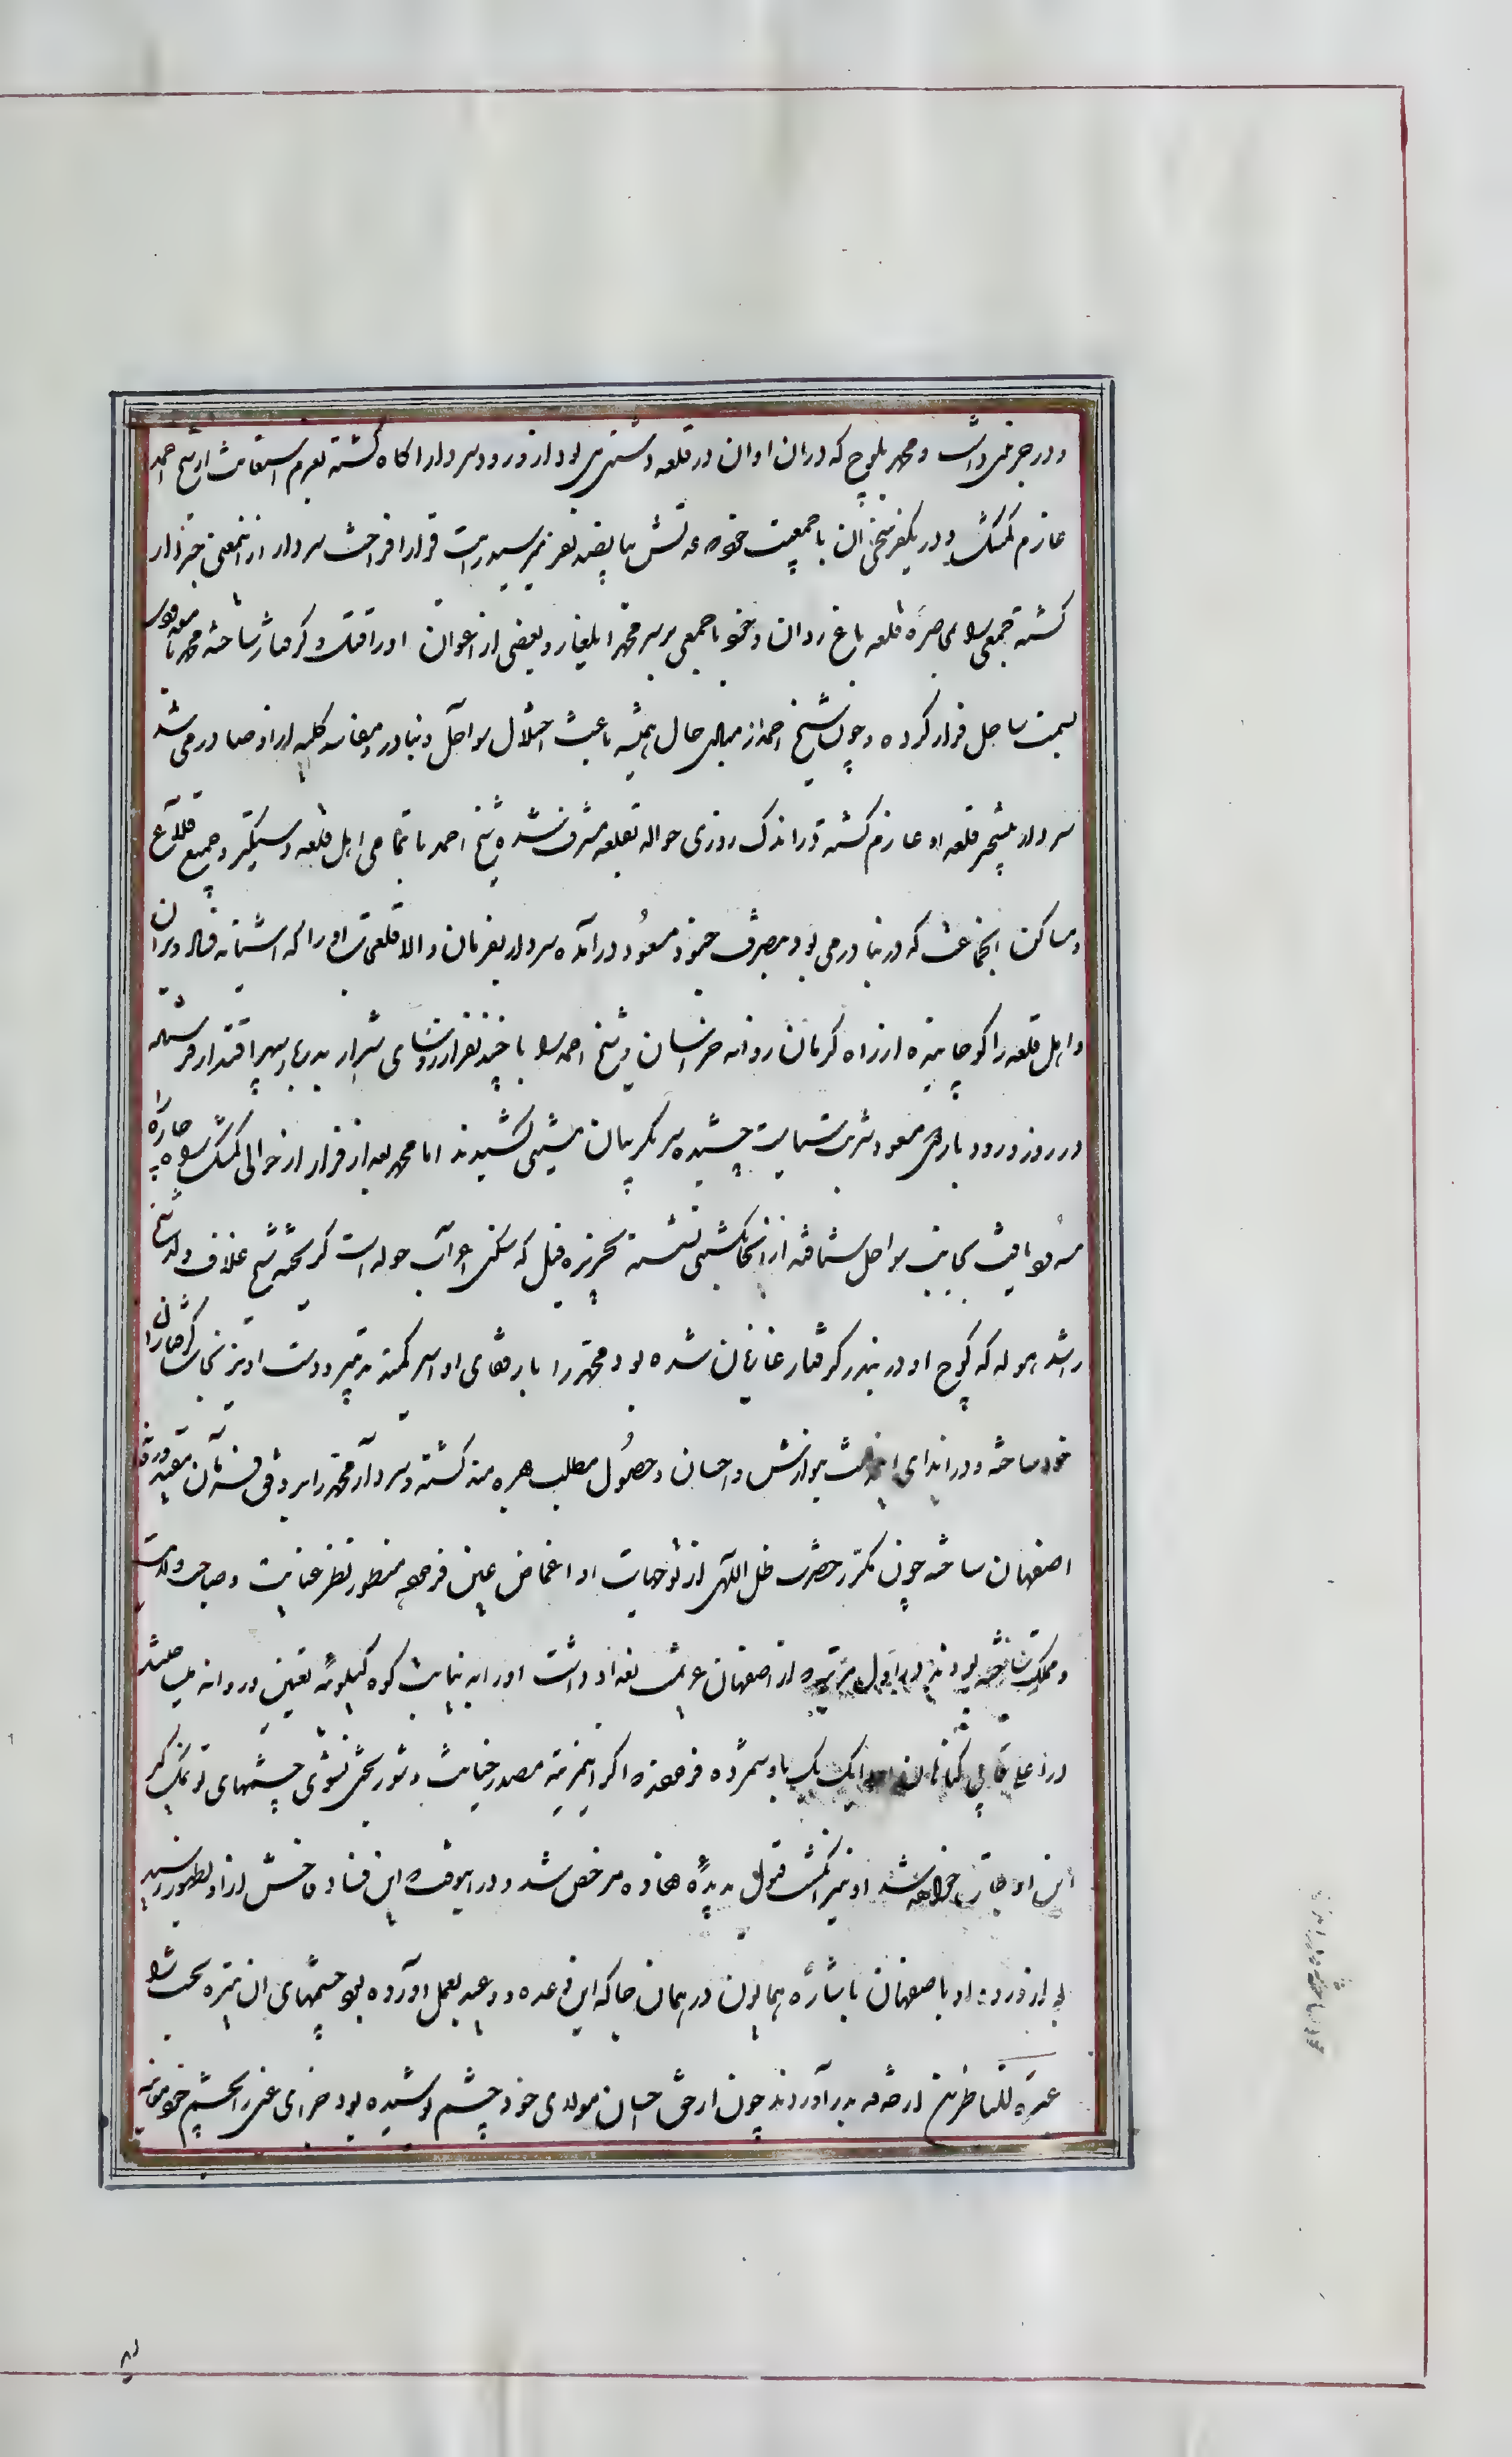 و در جر می داشت و محمد بلوچ که دران اوان در قلعه دشتی می بود از ورود سردار اکاه کشته بعزم استعانت از شیخ احمد
عازم کمشک و در یکفرسخی ان با جمعیت خود که عدتش بپانصد نفر میرسید رایت قرار افراخت سردار از اینمعنی خبردار
کشته جمعی را بمحاصره قلعه باغ روان و خود با جمعی بر سر محمد ایلغار و بعضی از اعوان او را قتل و کرفتار ساخته محمد با معدودی
بسمت ساحل فرار کرده و چون شیخ احمد از مبادی حال همیشه باعث اختلال سواحل و بنادر و مفاسد کلیه از او صادر می شد
سردار بتسخیر قلعه او عازم کشته در اندک روزی حواله بقلعه مشرف شده شیخ احمد با تمامی اهل قلعه دستکیر و جمیع قلاع
و مساکن انجماعت که در بنادر می بود بتصرف جنود مسعود درآمده سردار بفرمان والا قلعجات او را که اشتیانه فساد ویران
و اهل قلعه را کوچانیده از راه کرمان روانه خراسان و شیخ احمد را با چند نفر از روسای شرار بدربار سپهر اقتدار فرستاده
در روز ورود باردوی مسعود شربت سیاست چشیده سر بکریبان نیستی کشیدند اما محمد بعد از فرار از حوالی کمشک راه چاره را
مسدود یافت بجانب سواحل شتافته از انجا بکشتی نشسته بجزیره قیس که سکنی اعراب حوله است کریخته شیخ علاق ولد شیخ
راشد هوله که کوچ او در بندر کرفتار غازیان شده بود محمد را با رفقای او اسیر کمند تدبیر و دست اویز نجات کوچ
خود ساخته و در ازای اینخدمت بنوازش و احسان و حصول مطلب بهره مند کشته و سردار محمد را بر وفق فرمان مقید روانه
اصفهان ساخته چون مکرر حضرت ظل اللهی از توجیهات او اغماض عین فرموده منظور نظر عنایت و صاحب ولایت
و مملکت ساخته بودند در اول مرتبه از اصفهان عزیمت بغداد داشت او را به نیابت کوه کیلویه تعیین و روانه میساختند
کناهان او را یک یک باو شمرده فرمودند که اکر اینمرتبه مصدر خیانت و شوربختی شوی چشمهای تو نمک کیر
این اوجاق خواهد شد او نیز انکشت قبول بدیده نهاده مرخص شد و در اینوقت این فساد فاحش از او بظهور رسید
بعد از ورود او باصفهان باشاره همایون در همان جا که این وعده و وعید بعمل آورده بود چشمهای ان تیره بخت را
عبرة للناظرین از حدقه بدر آوردند چون از حق احسان مولای خود چشم پوشیده بود جزای عمل را بچشم خود